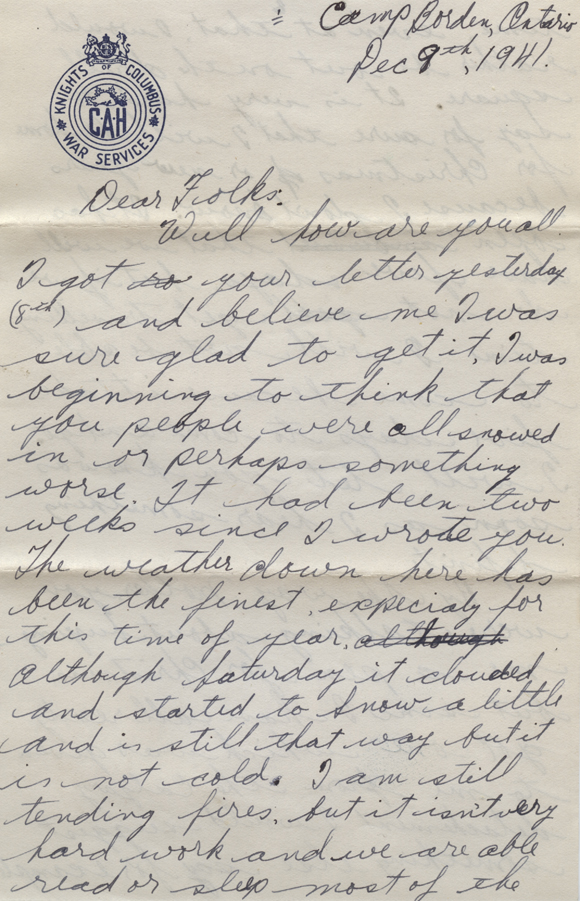 Camp Borden, Ontario
Dec 9th, 1941.
KNIGHTS OF COLUMBUS
C.A.H
WAR SERVICES
Dear Folks:
Well how are you all.
I got so your letter yesterday
(8th) and believe me I was
sure glad to get it, I was
beginning to think that
you people were all snowed
in or perhaps something
worse. It had been two
weeks since I wrote you.
The weather down here has
been the finest, expecialy for
this time of year, although
although Saturday it clouded
and started to snow a little
and is still that way but it
is not cold. I am still
tending fires, but it isn't very
hard work and we are able
read or sleep most of the